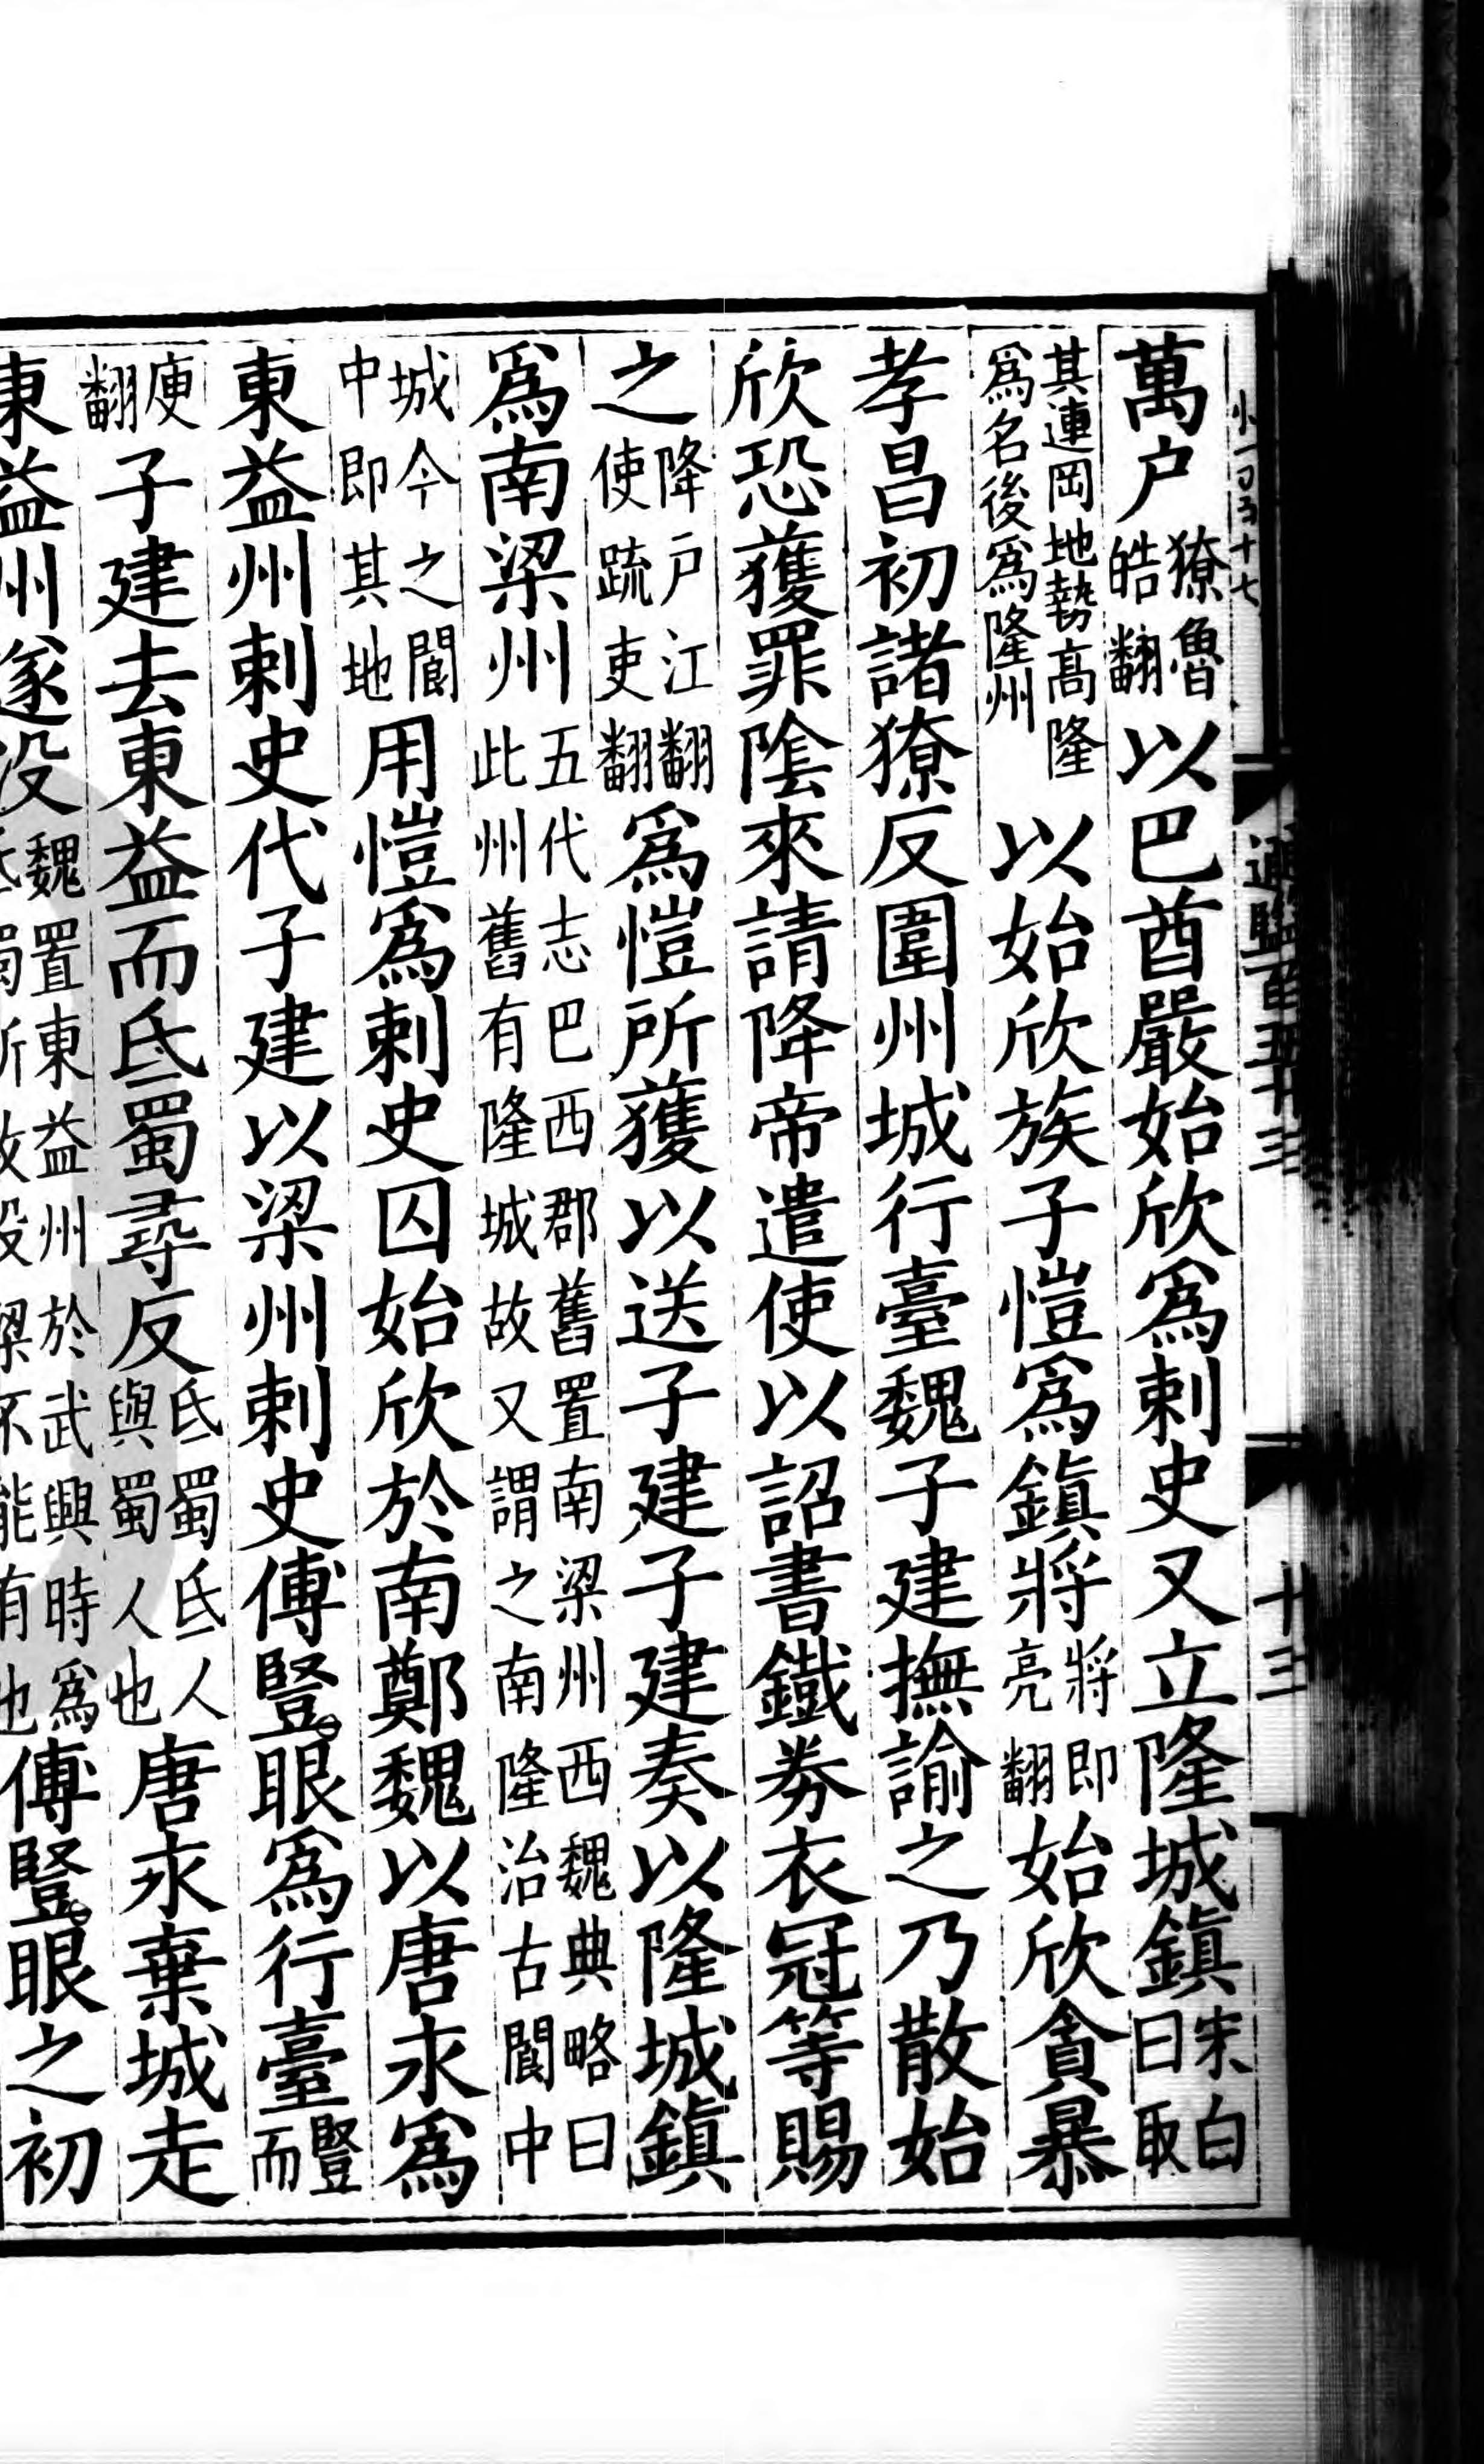 萬户獠魯皓翻以巴酋嚴始欣爲刺史又立隆城鎮宋白曰取
其連岡地勢高隆爲名後爲隆州以始欣族子愷爲鎮將將即亮翻始欣貪暴
孝昌初諸獠反圍州城行臺魏子建撫諭之乃散始
欣恐獲罪隂來請降帝遣使以詔書鐵券衣冠等賜
之降户江翻使疏吏翻爲愷所獲以送子建子建奏以隆城鎮
爲南梁州五代志巴西郡舊置南梁州西魏典略曰此州舊有隆城故又謂之南隆治古閬中
城今之閬中即其地用愷爲刺史囚始欣於南鄭魏以唐永爲
東益州刺史代子建以梁州刺史傅豎眼爲行臺豎而
庾翻子建去東益而氐蜀尋反氐蜀氐人與蜀人也唐永棄城走
東益州遂没魏置東益州於武興時爲傅豎眼之初
通鑑百五十三
十三